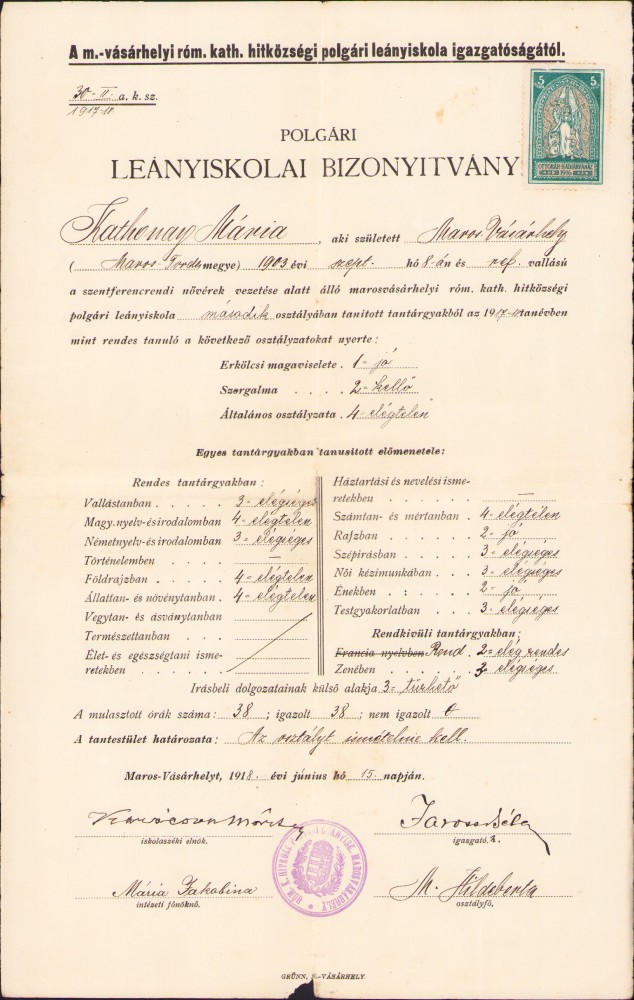 A m.-vásárhelyi róm. kath. hitközségi polgári leányiskola igazgatóságától.
30-II. a. k. sz.
1917-18.
5 5
OTTOKÁR
1916
POLGÁRI
LEÁNYISKOLAI BIZONYITVÁNY
Kathonay Mária, aki született Maros Vásárhely
( Maros Torda megye) 1903 évi szept. hó 8-án és ref. vallású
a szentferencrendi nővérek vezetése alatt álló marosvásárhelyi róm. kath. hitközségi
polgári leányiskola második osztályában tanitott tantárgyakból az 1917-18 tanévben
mint rendes tanuló a következő osztályzatokat nyerte:
Erkölcsi magaviselete. 1= jó
Szorgalma . . . . 2= kellő
Általános osztályzata. 4= elégtelen
Egyes tantárgyakban tanusitott előmenetele:
Rendes tantárgyakban:
Vallástanban . . . . . 3= elégséges
Magy. nyelv- és irodalomban 4= elégtelen
Németnyelv- és irodalomban 3= elégséges
Történelemben . . . . —
Földrajzban . . . . . 4= elégtelen
Állattan- és növénytanban . 4= elégtelen
Vegytan- és ásványtanban
Természettanban . . .
Élet- és egészségtani isme-
retekben . . . . . .
Háztartási és nevelési isme-
retekben . . . . . . —
Számtan- és mértanban . 4= elégtelen
Rajzban . . . . . . 2= jó
Szépirásban . . . . . 3= elégséges
Női kézimunkában . . . 3= elégséges
Énekben . : . . . . 2= jó
Testgyakorlatban . . . 3= elégséges
Rendkivüli tantárgyakban:
Francia nyelvben Rend. 2= elég rendes
Zenében . . . . . . 3= elégséges
Irásbeli dolgozatainak külső alakja 3= türhető
A mulasztott órák száma: 38 ; igazolt 38 ; nem igazolt 0
A tantestület határozata: Az osztályt ismételnie kell.
Maros-Vásárhelyt, 1918. évi június hó 15. napján.
iskolaszéki elnök.
Jaross Béla
igazgató.
Mária Jakobina
intézeti főnöknő.
M. Hildeberta
osztályfő.
GRÜNN, -VÁSÁRHELY.